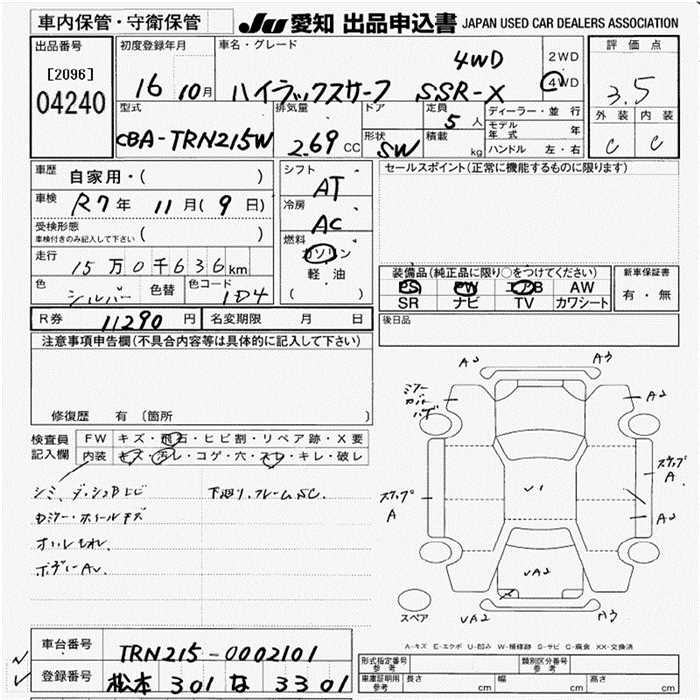 車内保管・守衛保管
JU 愛知 出品申込書 JAPAN USED CAR DEALERS ASSOCIATION
出品番号
[2096]
04240
初度登録年月
16 10月
車名・グレード
ハイラックスサーフ SSR-X 4WD
2WD
4WD
評価点
3.5
外装 内装
C C
型式
CBA-TRN215W
排気量
2.69 CC
ドア
形状
SW
定員
5 人
積載
kg
ディーラー・並行
モデル年式 年
ハンドル 左・右
車歴
自家用・( )
車検
R7年 11月(9日)
受検形態
車検付きのみ記入して下さい ( )
走行
15万0千636km
色
シルバー 色替
色コード
1D4
シフト
AT
冷房
AC
燃料
ガソリン
軽油
( )
セールスポイント(正常に機能するものに限ります)
装備品(純正品に限り○をつけてください)
PS PW エアB AW
SR ナビ TV カワシート
新車保証書
有・無
後日品
R券 11290 円 名変期限 月 日
注意事項申告欄(不具合内容等は具体的に記入して下さい)
修復歴 有 〔箇所
検査員記入欄
FW キズ・飛石・ヒビ割・リペア跡・X要
内装 キズ・汚レ・コゲ・穴・スレ・キレ・破レ
シミ、ダッシュBヒビ 下廻リ、フレームSC.
Rミラー・ホイールキズ
オイルモレ.
ボディーAU.
A2 A3
ミラー
A2
ステップ
A
ステップ
A
A2
U1
UA2
UA2 A3
スペア
A-キズ E-エクボ U-凹み W-補修跡 S-サビ C-腐食 XX-交換済
車台番号 TRN215-0002101
登録番号 松本 301 な 3301
形式指定番号
参考
類別区分番号
参考
車庫証明用
参考
長さ cm 幅 cm 高さ cm